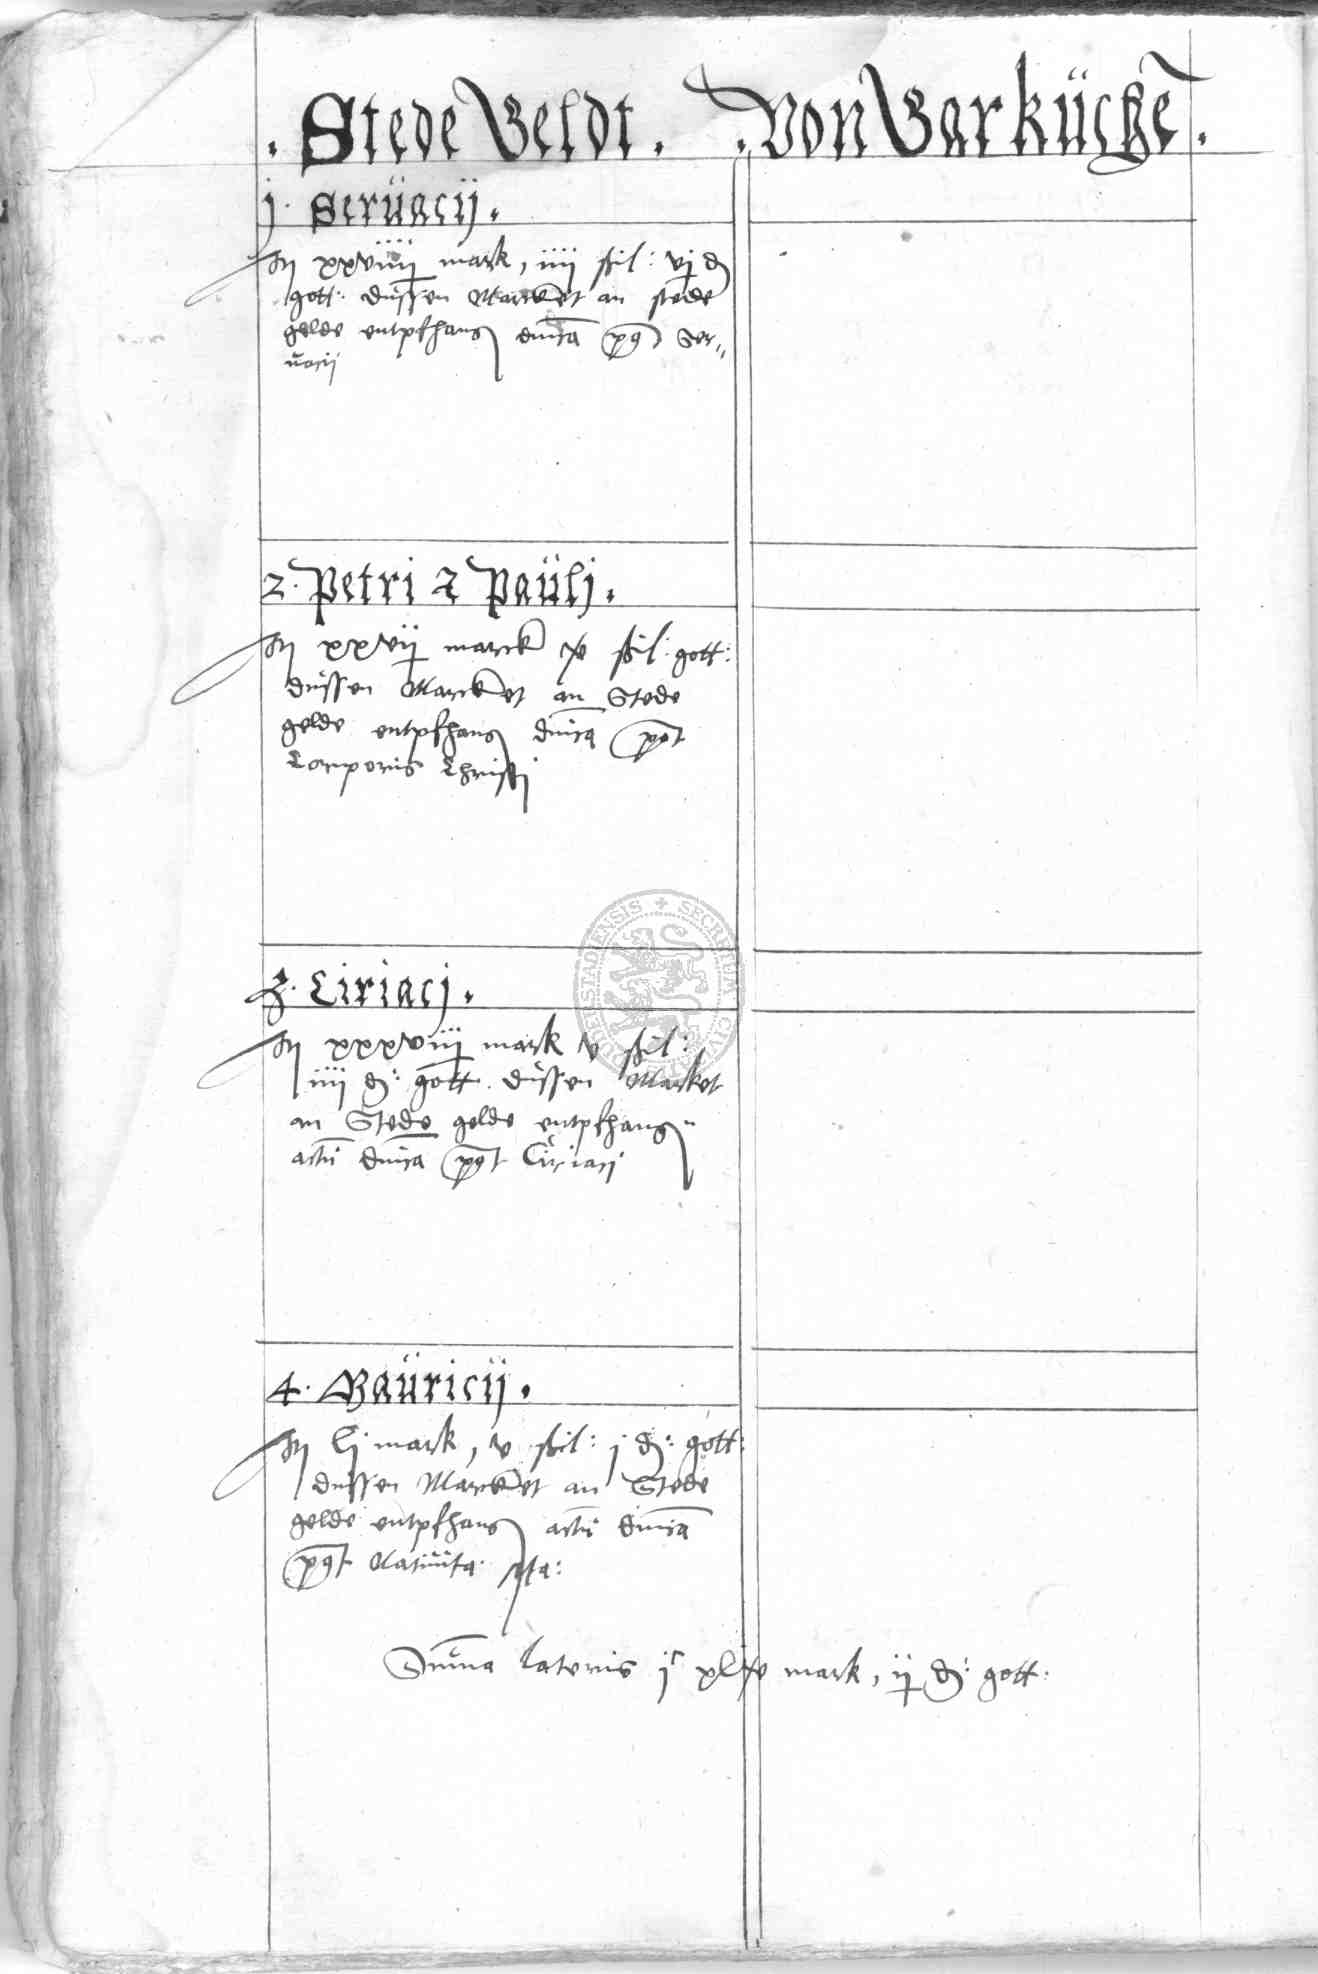 . Stede Geldt . . Von Garküche .
j . Serüacij .
It xxviiij mark, iiij ßil : vj d
gott : dussen Marcket an stede
gelde entpfhang dnica pt Ser„
uacij
2 . Petri & Paülj .
It xxvij marck ix ßil : gott :
dussen Marcket an Stede
gelde entpfhang dnica pt
Corporis Christj
3 . Ciriacj .
It xxxviij mark v ßil :
iiij d : gott . dussen Market
an Stede gelde entpfhang
actu dnica pt Ciriacj
4 . Mauricij .
It lj mark, v ßil : j d : gott :
dussen Marcket an Stede
gelde entpfhang actu dnica
pt Natiuita :
Suma lateris jc xlix mark, ij d : gott :
SECRETUM CIVI DUDERSTADENSIS